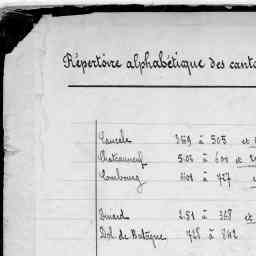 Répertoire alphabétique des canto
Cancale 369 à 505 et
Chateauneuf 506 à 600 et
Combourg 601 à 727
Dinard 251 à 368 et
Dol de Bretagne 728 à 842